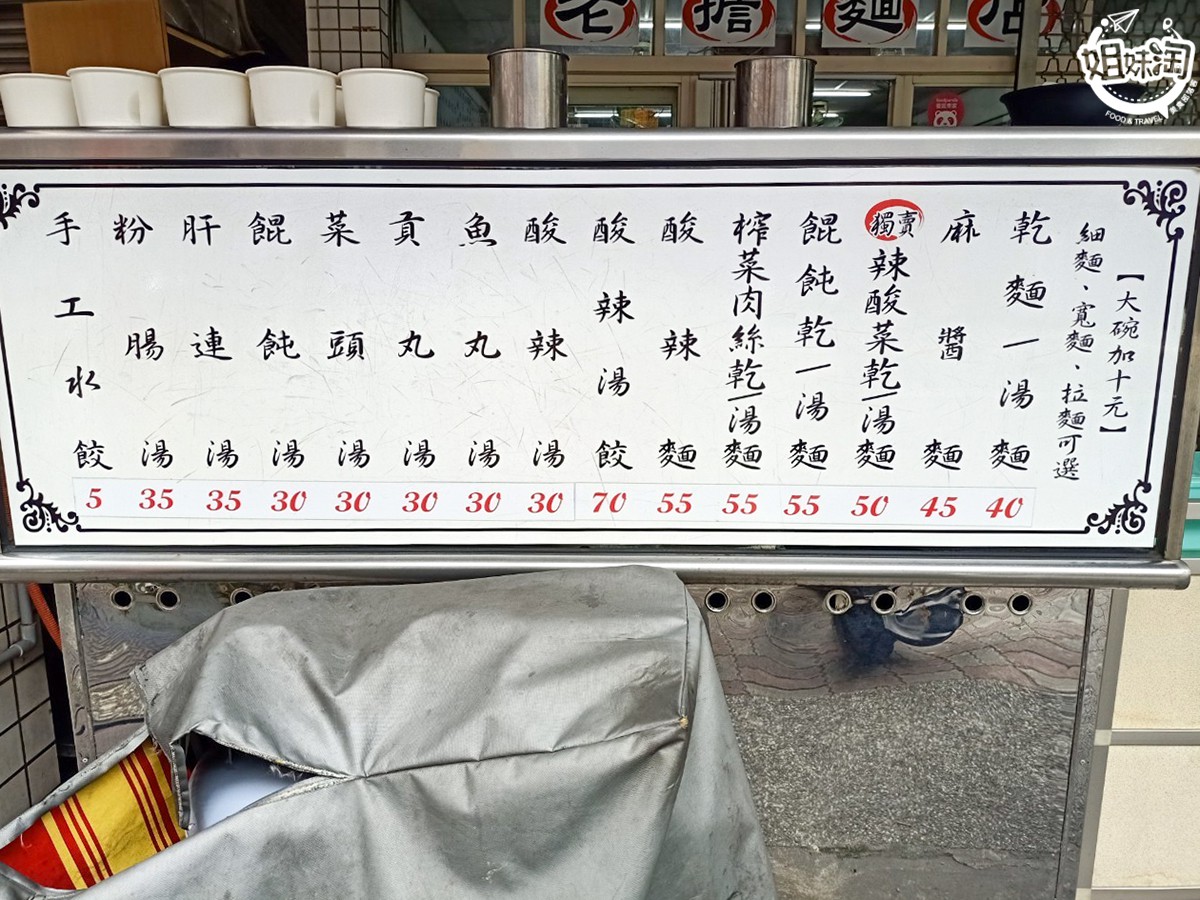 老擔麵店
姐妹淘
FOOD & TRAVEL
【大碗加十元】
細麵、寬麵、拉麵可選
乾麵–湯麵 40
麻醬麵 45
獨賣
辣酸菜乾–湯麵 50
餛飩乾–湯麵 55
榨菜肉絲乾–湯麵 55
酸辣麵 55
酸辣湯餃 70
酸辣湯 30
魚丸湯 30
貢丸湯 30
菜頭湯 30
餛飩湯 30
肝連湯 35
粉腸湯 35
手工水餃 5